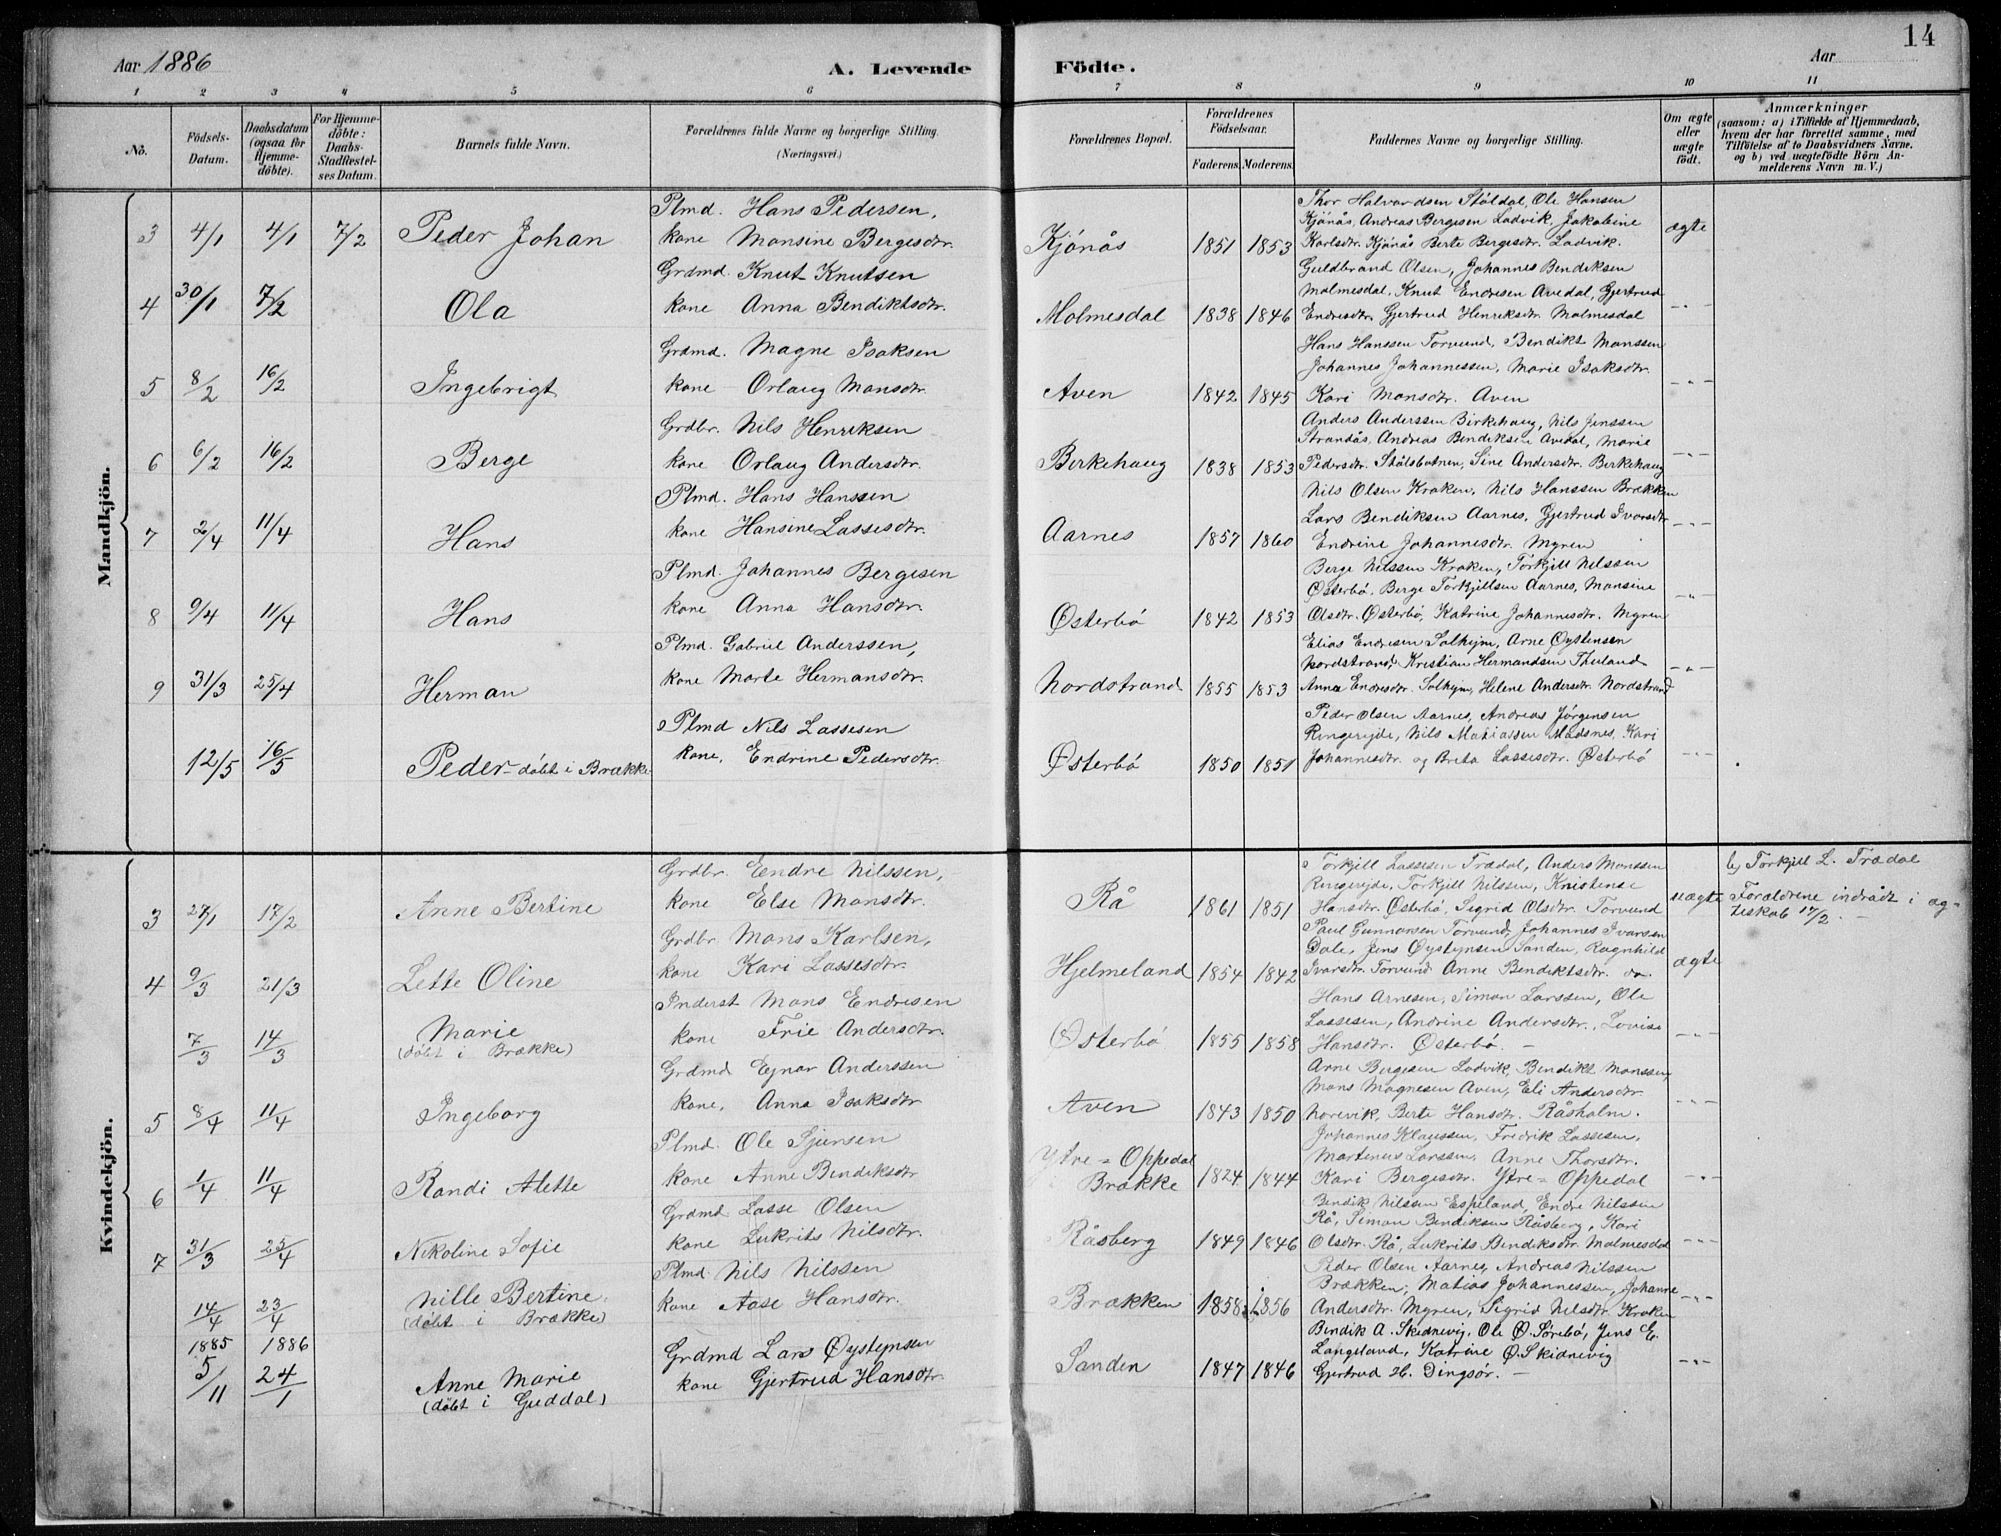 Aar 1886
A. Levende
Födte.
Aar
14
1 2 3 4 5 6 7 8 9 10 11
Nô.
Födsels-Datum.
Daabsdatum (ogsaa for Hjemme-döbte).
For Hjemme-döbte: Daabs-Stadfæstel-ses Datum.
Barnets fulde Navn.
Forældrenes fulde Navne og borgerlige Stilling. (Næringsvei.)
Forældrenes Bopæl.
Forældrenes Födselsaar.
Faderens. Moderens.
Faddernes Navne og borgerlige Stilling.
Om ægte eller uægte födt.
Anmærkninger
(saasom: a) i Tilfælde af Hjemmedaab,
hvem der har forrettet samme, med
Tilföielse af to Daabsvidners Navne.
og b) ved uægtefödte Börn An-
melderens Navn m. V.)
Mandkjön.
Plmd. Hans Pedersen, Thor Halvardsen Stöldal, Ole Hansen
Kjönås, Andreas Bergesen Ladvik, Jakobine
3 4/1 4/1 7/2 Peder Johan kone Monsine Bergesdtr. Kjönås 1851 1853 Karlsdtr. Kjönås Berte Bergesdtr. Ladvik. ægte
Grdmd. Knut Knutsen Guldbrand Olsen, Johannes Bendiksen
Molmesdal, Knut Endresen Avedal, Gjertrud
4 30/1 7/2 Ola kone Anna Bendiktsdtr. Molmesdal 1838 1846 Endresdtr. Gjertrud Henriksdtr. Molmesdal -"-
Grdmd. Magne Isaksen Hans Hanssen Torvund, Bendikt Monssen
Johannes Johannessen, Marie Isaksdtr.
5 8/2 16/2 Ingebrigt kone Orlaug Monsdtr. Aven 1842 1845 Kari Monsdtr. Aven -"-
Grdbr. Nils Henriksen Anders Anderssen Birkehaug, Nils Jenssen
Strandås, Andreas Bendiksen Avedal, Marie
6 6/2 16/2 Berge kone Orlaug Andersdtr. Birkehaug 1838 1853 Pedersdtr. Stölsbotnen, Sine Andersdtr. Birkehaug -"-
Plmd. Hans Hanssen Nils Olsen Kraken, Nils Hanssen Brækken
Lars Bendiksen Aarnes, Gjertrud Ivarsdtr
7 2/4 11/4 Hans kone Hansine Lassesdtr. Aarnes 1857 1860 Endrine Johannesdtr. Myren -"-
Plmd. Johannes Bergesen Berge Nilssen Kraken, Torkjill Nilssen
Østerbö, Berge Torkjillsen Aarnes, Monsine
8 9/4 11/4 Hans kone Anna Hansdtr. Østerbö 1842 1853 Olsdtr. Østerbö, Katrine Johannesdtr. Myren -"-
Plmd. Gabriel Anderssen, Elias Endresen Solhejm, Arne Øystensen
Nordstrand, Kristian Hermandsen Thuland
9 31/3 25/4 Herman kone Marte Hermansdtr. Nordstrand 1855 1853 Anna Endresdtr. Solhejm, Helene Andersdtr. Nordstrand -"-
Plmd Nils Lassesen Peder Olsen Aarnes, Andreas Jørgensen
Ringerejde, Nils Matiassen Mådsnes, Kari
12/5 16/5 Peder - döbt i Brække kone, Endrine Pedersdtr. Østerbö 1850 1851 Johannesdtr. og Brita Lassesdtr. Østerbö -"-
Kvindekjön.
Grdbr. Endre Nilssen, Torkjill Lassesen Trædal, Anders Monssen b) Torkjill L. Trædal
Ringerejde, Torkjill Nilssen, Kristense
3 27/1 17/2 Anne Bertine kone Else Monsdtr. Rå 1861 1851 Hansdtr. Østerbö, Sigrid Olsdtr. Torvund uægte Forældrene indrådt i æg-
teskab 17/2. -
Grdbr Mons Karlsen, Paul Gunnarsen Torvund, Johannes Ivarsen
Dale, Jens Øystejnsen Sanden, Ragnhild
4 9/3 21/3 Lette Oline kone Kari Lassesdtr. Hjelmeland 1854 1842 Ivarsdtr. Torvund Anne Bendiktsdtr. ægte
Inderst Mons Endresen Hans Arnesen, Simon Larssen, Ole
Lassesen, Andrine Andersdtr., Lovise
7/3 14/3 Marie (döbt i Brække) kone Frie Andersdtr. Østerbö 1855 1858 Hansdtr. Østerbö. - -"-
Grdmd Ejnar Anderssen Arne Bergesen Ladvik, Bendikt Monssen,
Mons Magnesen Aven, Eli Andersdtr.
5 8/4 11/4 Ingeborg kone, Anna Isaksdtr Aven 1843 1850 Norevik, Berte Hansdtr. Råsholm. -"-
Plmd. Ole Sjursen Johannes Klaussen, Fredrik Lassesen,
Martenius Larssen, Anne Thorsdtr.
6 1/4 11/4 Randi Alette kone Anne Bendiksdtr Ytre = Oppedal Brække 1824 1844 Kari Bergesdtr. Ytre = Oppedal -"-
Grdmd Lasse Olsen Bendik Nilssen Espeland, Endre Nilssen
Rå, Simon Bendiksen Råsberg, Kari
7 31/3 25/4 Nikoline Sofie kone Lukrits Nilsdtr. Råsberg 1849 1846 Olsdtr. Rå, Lukrits Bendiksdtr. Molmesdal -"-
Plmd. Nils Nilssen Peder Olsen Aarnes, Andreas Nilssen
Brækken, Matias Johannessen, Johanne
14/4 23/4 Nille Bertine (döbt i Brække) kone Aase Hansdtr. Brækken 1858 1856 Andersdtr. Myren, Sigrid Nilsdtr. Kraken -"-
1885 1886 Grdmd Lars Øystejnsen Bendik A. Skidnevig, Ole Ø. Sörebö, Jens E.
Langeland, Katrine Ø. Skidnevig
5/11 24/1 Anne Marie (döbt i Guddal) kone Gjertrud Hansdtr. Sanden 1847 1846 Gjertrud H. Dingsör. - -"-